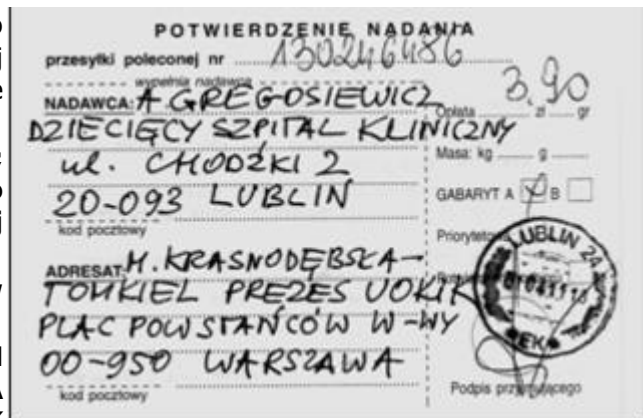 POTWIERDZENIE NADANIA
przesyłki poleconej nr 130246486
wypełnia nadawca
NADAWCA: A GREGOSIEWICZ
DZIECIĘCY SZPITAL KLINICZNY
ul. CHODŹKI 2
20-093 LUBLIN
kod pocztowy
ADRESAT: M. KRASNODĘBSKA-
TOMKIEL PREZES UOKIK
PLAC POWSTAŃCÓW W-WY
00-950 WARSZAWA
kod pocztowy
3,90
Opłata zł gr
Masa: kg g
GABARYT A X B
LUBLIN 24
Podpis przyjmującego